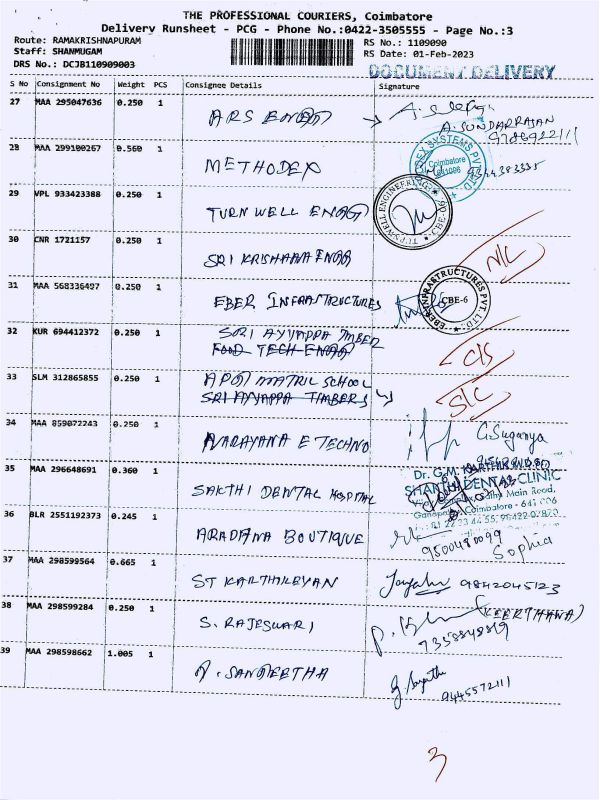 THE PROFESSIONAL COURIERS, Coimbatore
Delivery Runsheet - PCG - Phone No.:0422-3505555 - Page No.:3
Route: RAMAKRISHNAPURAM
Staff: SHANMUGAM
DRS No.: DCJB110909003
RS No.: 1109090
RS Date: 01-Feb-2023
DOCUMENT DELIVERY
S No Consignment No Weight PCS Consignee Details Signature
27 MAA 295047636 0.250 1 ARS ENGG
A. SUNDARRAJAN
28 MAA 299100267 0.560 1 METHODEX
SYSTEMS PVT LTD
Coimbatore
29 VPL 933423388 0.250 1 TURN WELL ENGG
ENGINEERING
30 CNR 1721157 0.250 1 SRI KRISHANA ENGG N/C
31 MAA 568336497 0.250 1 EBER INFRASTRUCTURES
EBER INFRASTRUCTURES PVT. LTD.
CBE-6
32 KUR 694412372 0.250 1 SRI AYYAPPA TIMBER
FOOD TECH ENGG
C/S
33 SLM 312865855 0.250 1 MATRIC SCHOOL
SRI AYYAPPA TIMBERS
S/C
34 MAA 859072243 0.250 1 NARAYANA E TECHNO G. Suganya
35 MAA 296648691 0.360 1 SAKTHI DENTAL HOSPITAL
Dr. G.M.
SHANTHI DENTAL CLINIC
Main Road,
Coimbatore - 641 006
36 BLR 2551192373 0.245 1 ARADANA BOUTIQUE
9500480099
Sophia
37 MAA 298599564 0.665 1 ST KARTHIKEYAN 9842045123
38 MAA 298599284 0.250 1 S. RAJESWARI (KEERTHANA)
7358848819
39 MAA 298598662 1.005 1 A. SANGEETHA
9445572111
3